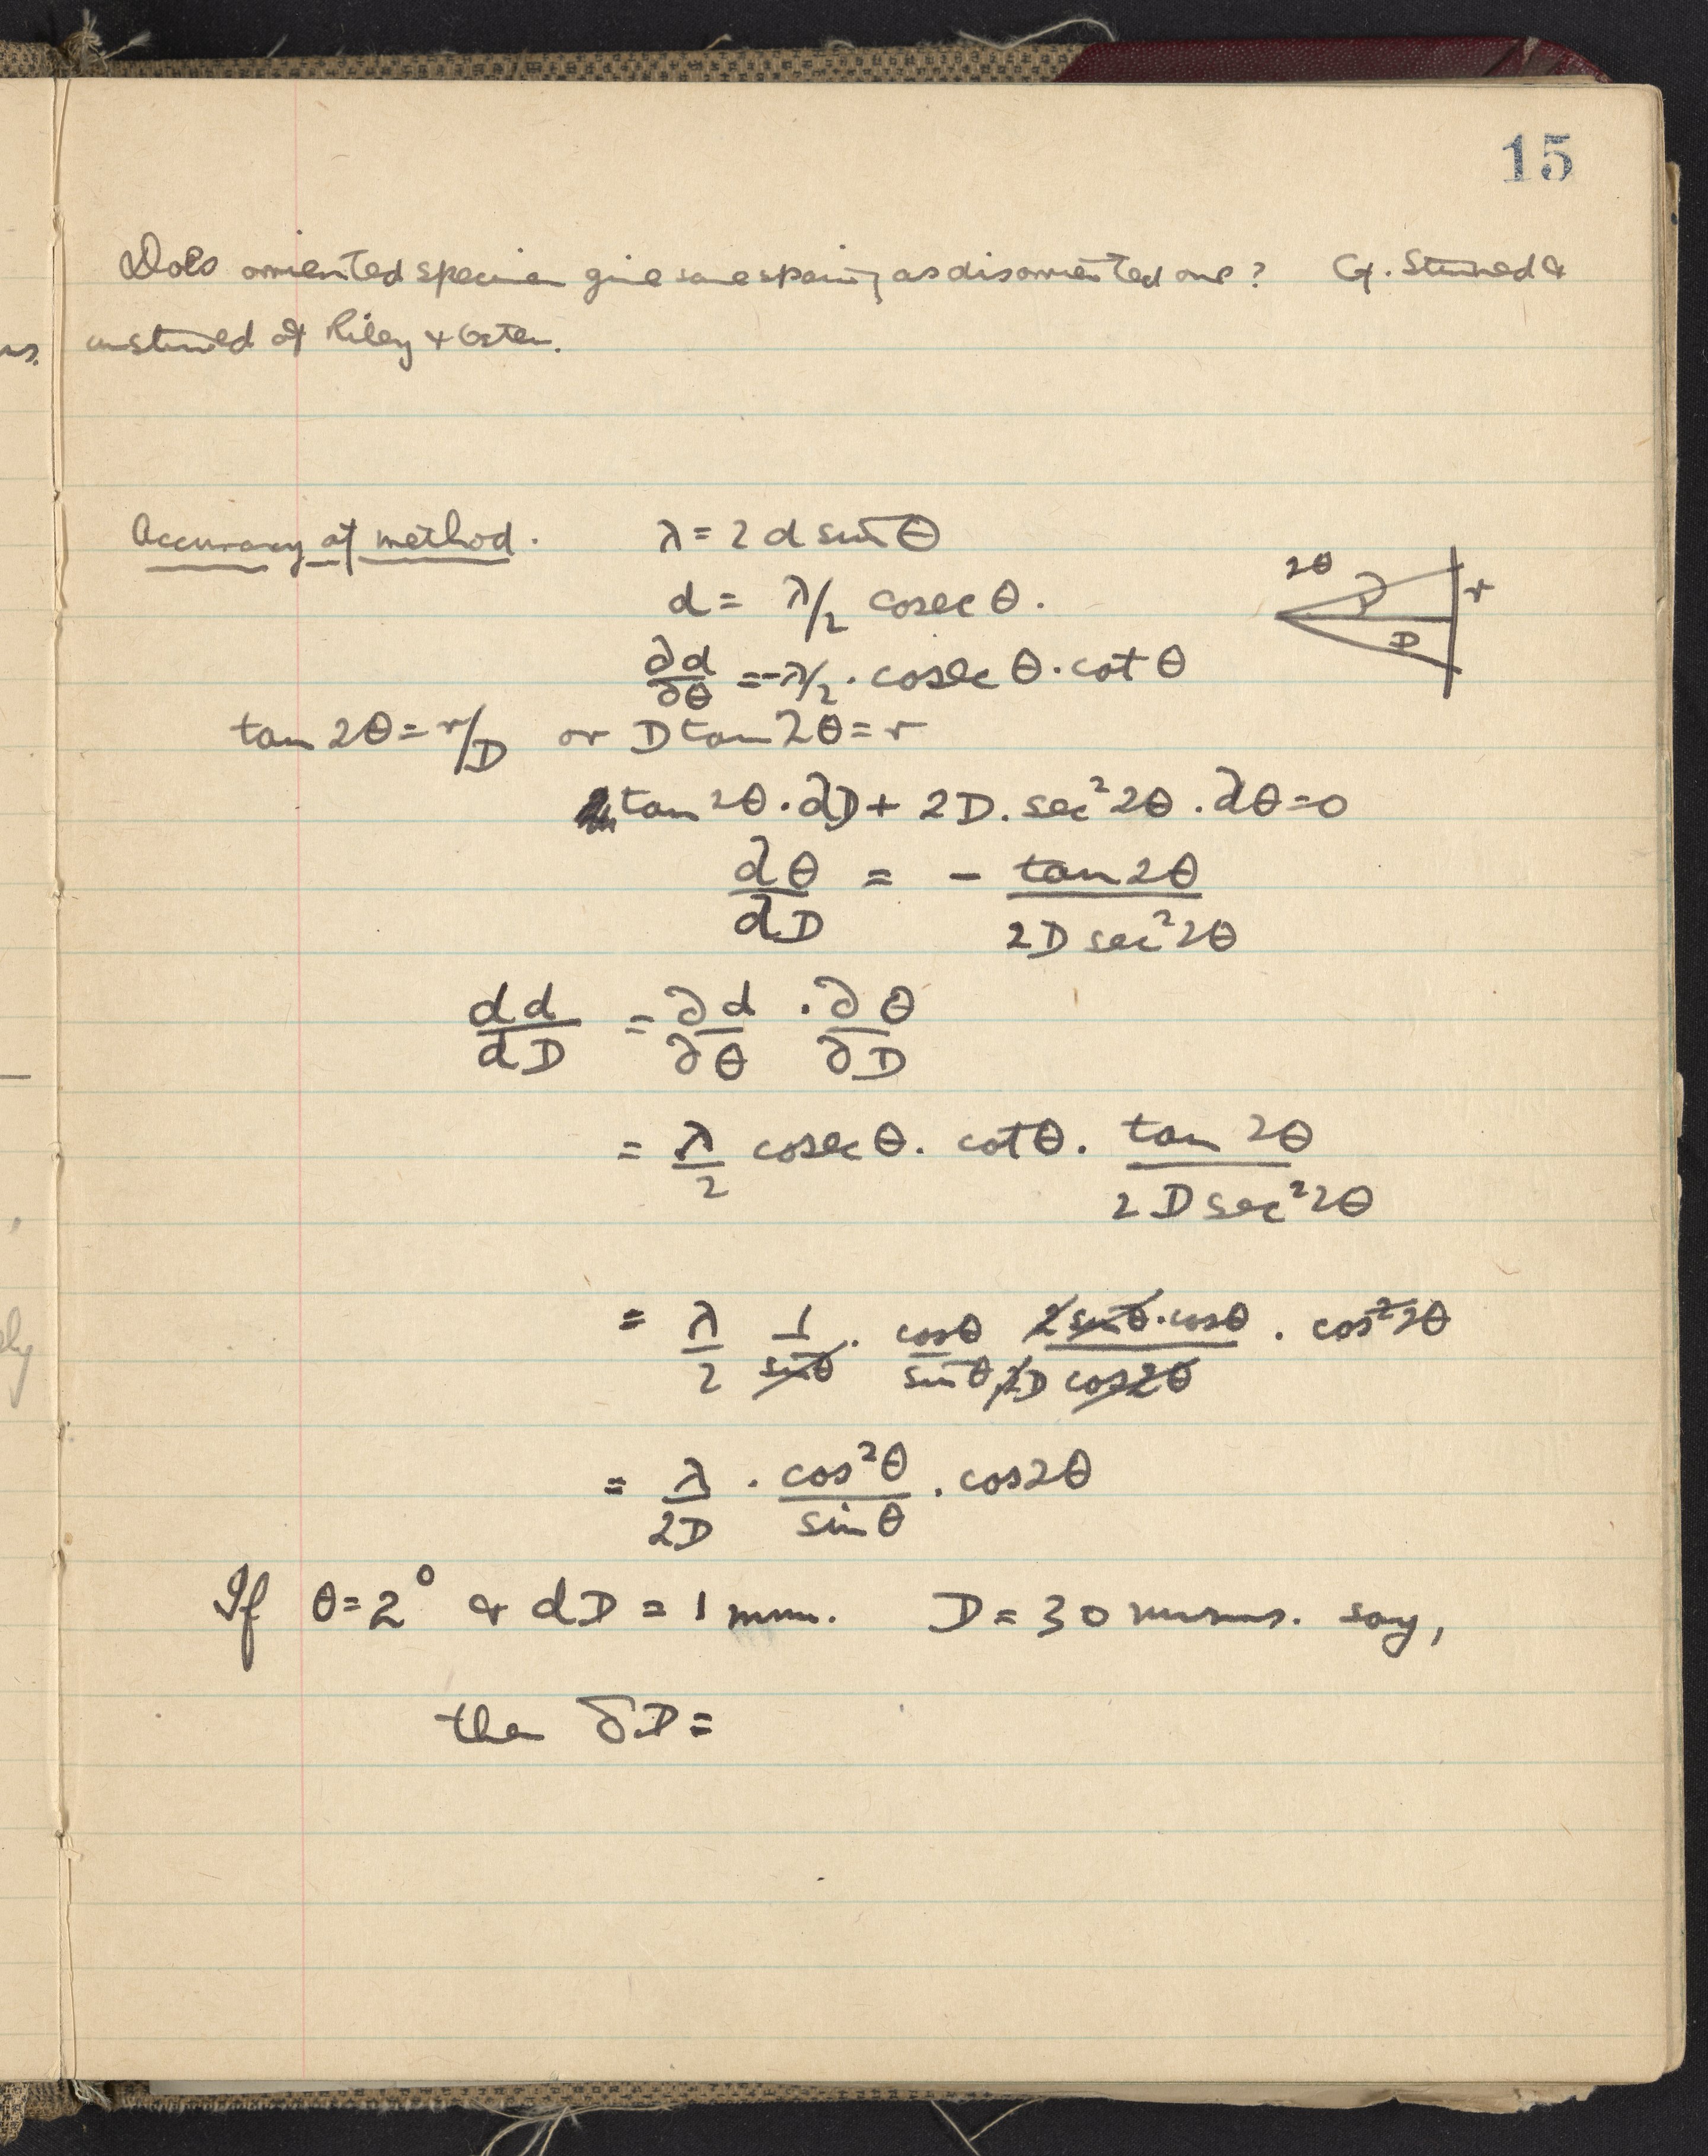 15
Does orriented specimen give same spacing as disorriented one? Cf. Stirred &
unstirred of Riley & Oster.
Accuracy of method. λ = 2 d sin θ
2θ
d = λ/2 cosec θ.
r
D
∂d/∂θ = -λ/2 . cosec θ . cot θ
tan 2θ = r/D or D tan 2θ = r
tan 2θ . dD + 2D . sec² 2θ . dθ = 0
dθ/dD = - tan 2θ / 2D sec² 2θ
dd/dD = ∂d/∂θ . ∂θ/∂D
= λ/2 cosec θ . cot θ . tan 2θ / 2D sec² 2θ
= λ/2 1/sin θ . cos θ/sin θ . 2 sin θ . cos θ / 2D cos 2θ . cos² 2θ
= λ/2D . cos² θ / sin θ . cos 2θ
If θ = 2° & dD = 1 mm. D = 30 mms. say,
then δD =